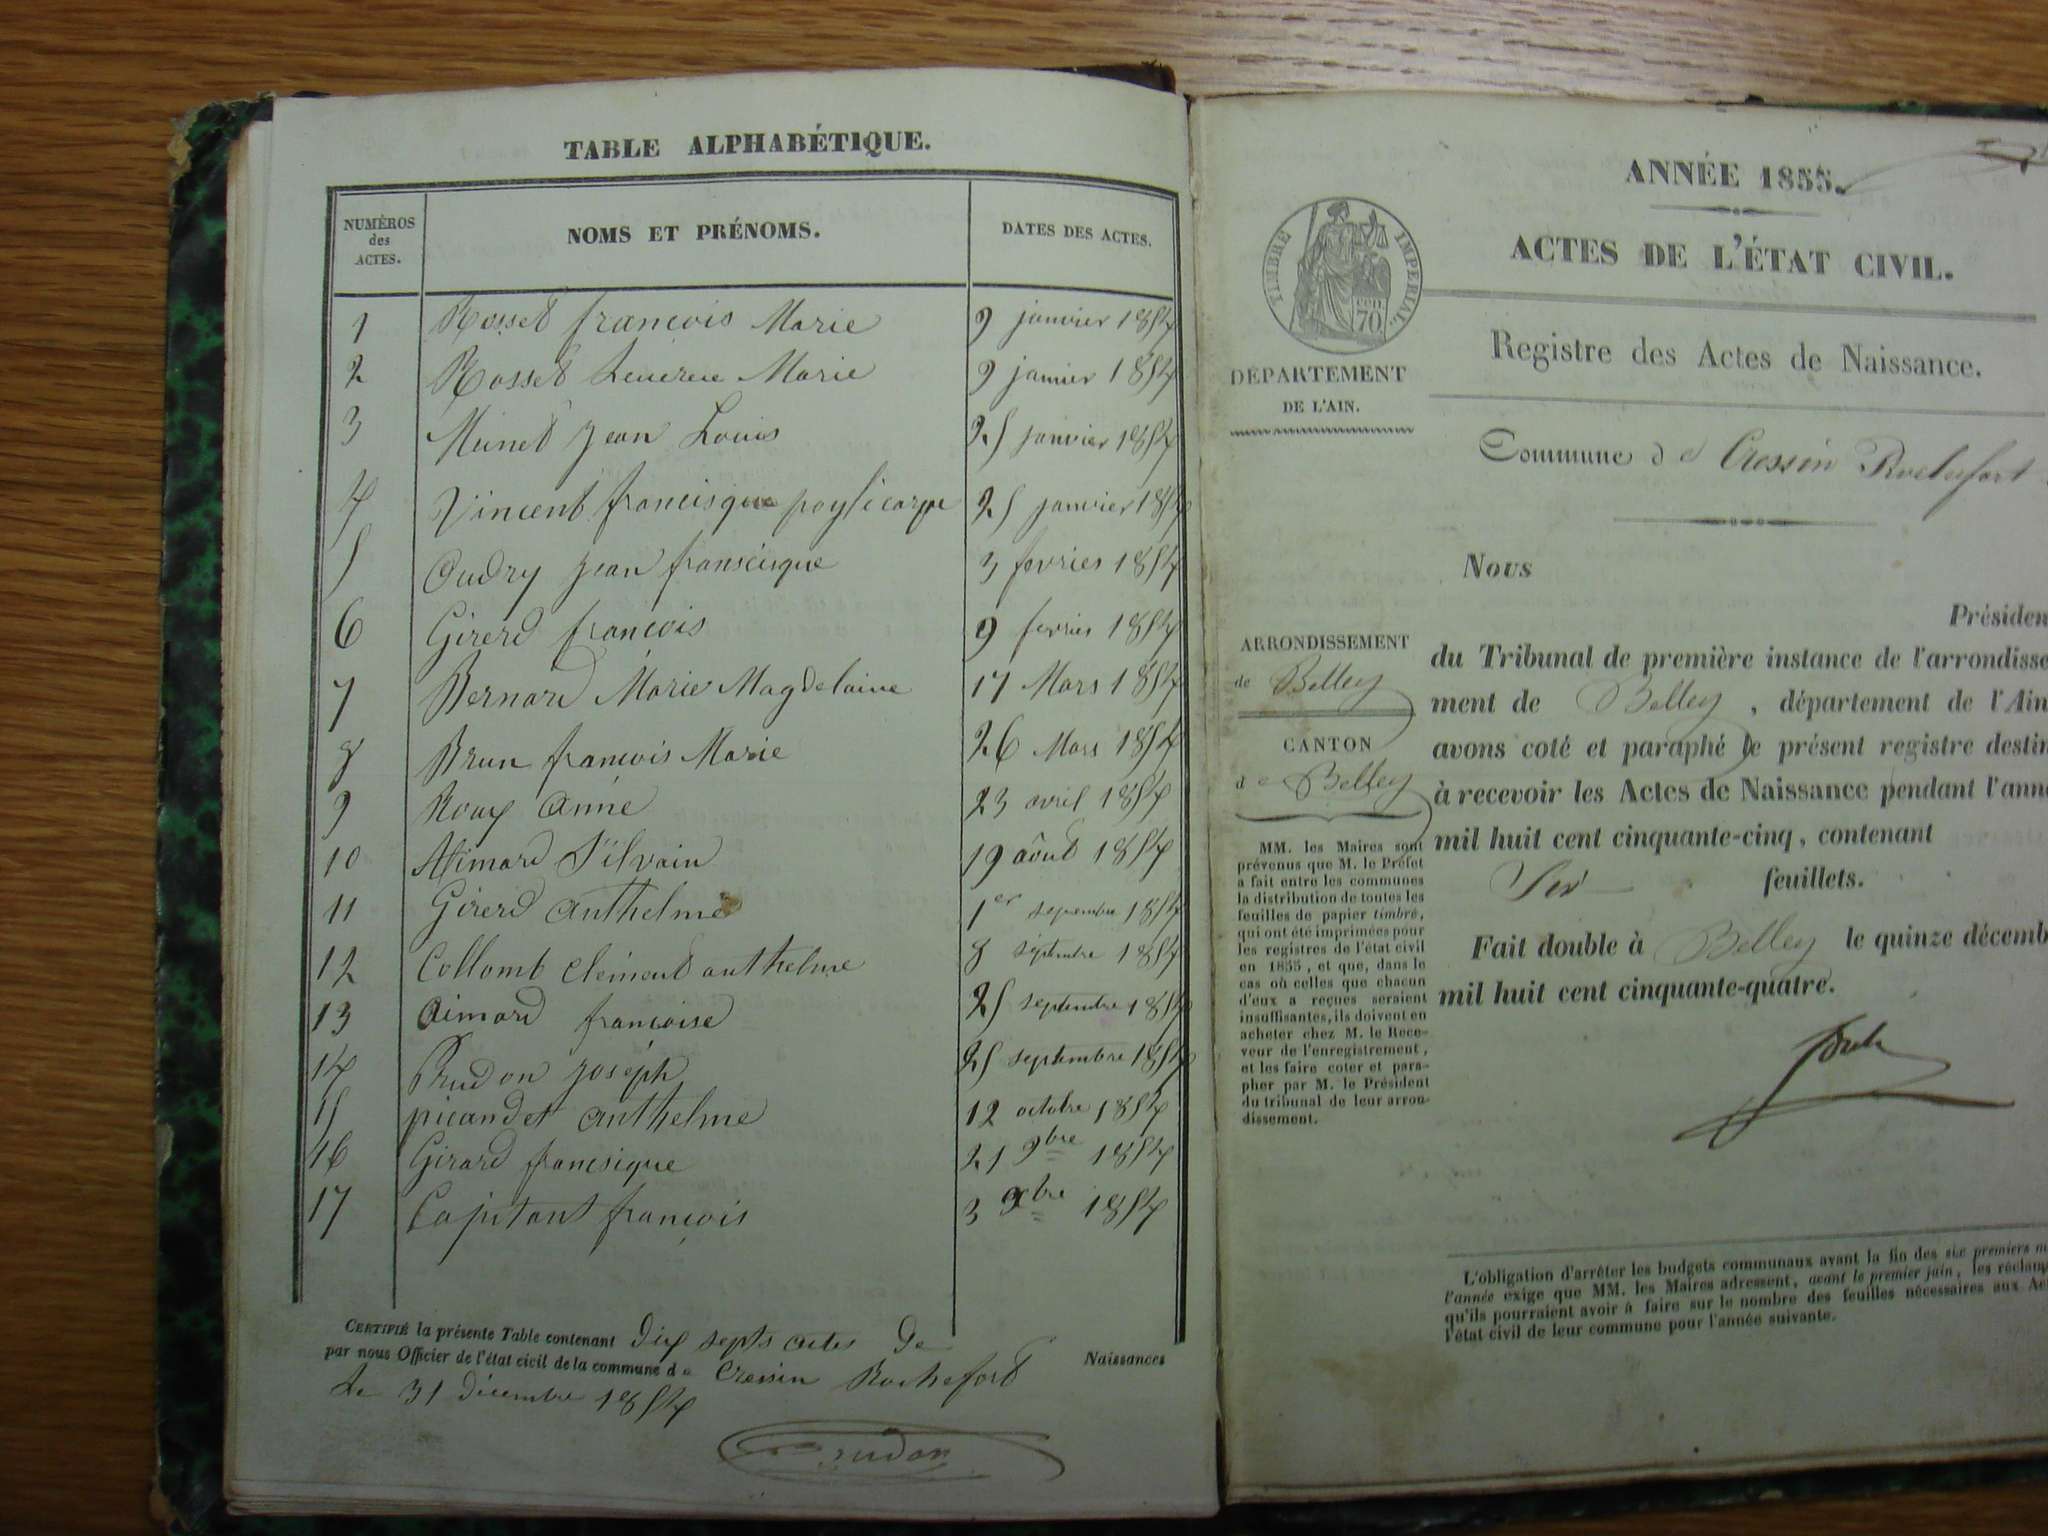 TABLE ALPHABÉTIQUE.
NUMÉROS des ACTES. NOMS ET PRÉNOMS. DATES DES ACTES.
1 Rosset françois Marie 9 janvier 1854
2 Rosset Marie 9 janvier 1854
3 Meinet jean Louis 25 janvier 1854
4 Vincent francisque poylicarpe 25 janvier 1854
5 Oudry jean franscisque 3 fevrier 1854
6 Girerd françois 9 fevrier 1854
7 Bernard Marie Magdelaine 17 Mars 1854
8 Brun françois Marie 26 Mars 1854
9 Roux anne 23 avril 1854
10 Aimard Silvain 19 août 1854
11 Girerd anthelme 1er septembre 1854
12 Collomb clément anthelme 8 septembre 1854
13 Aimard françoise 25 septembre 1854
14 Prudon joseph 25 septembre 1854
15 picandet anthelme 12 octobre 1854
16 Girard francsique 21 9bre 1854
17 Capitant françois 3 Xbre 1854
CERTIFIÉ la présente Table contenant dix septs actes de Naissances
par nous Officier de l'état civil de la commune de Cressin Rochefort
Le 31 décembre 1854
Prudon
ANNÉE 1855.
ACTES DE L'ÉTAT CIVIL.
TIMBRE IMPERIAL.
cen. 70
Registre des Actes de Naissance.
DÉPARTEMENT
DE L'AIN.
Commune de Cressin Rochefort
Nous
Présiden
du Tribunal de première instance de l'arrondisse
ment de Belley, département de l'Ain
avons coté et paraphé le présent registre destin
à recevoir les Actes de Naissance pendant l'anné
mil huit cent cinquante-cinq, contenant
Six feuillets.
Fait double à Belley le quinze décemb
mil huit cent cinquante-quatre.
ARRONDISSEMENT
de Belley
CANTON
de Belley
MM. les Maires sont
prévenus que M. le Préfet
a fait entre les communes
la distribution de toutes les
feuilles de papier timbré,
qui ont été imprimées pour
les registres de l'état civil
en 1855, et que, dans le
cas où celles que chacun
d'eux a reçues seraient
insuffisantes, ils doivent en
acheter chez M. le Rece-
veur de l'enregistrement,
et les faire coter et para-
pher par M. le Président
du tribunal de leur arron-
dissement.
L'obligation d'arrêter les budgets communaux avant la fin des six premiers m
l'année exige que MM. les Maires adressent, avant le premier juin, les réclam
qu'ils pourraient avoir à faire sur le nombre des feuilles nécessaires aux Ac
l'état civil de leur commune pour l'année suivante.